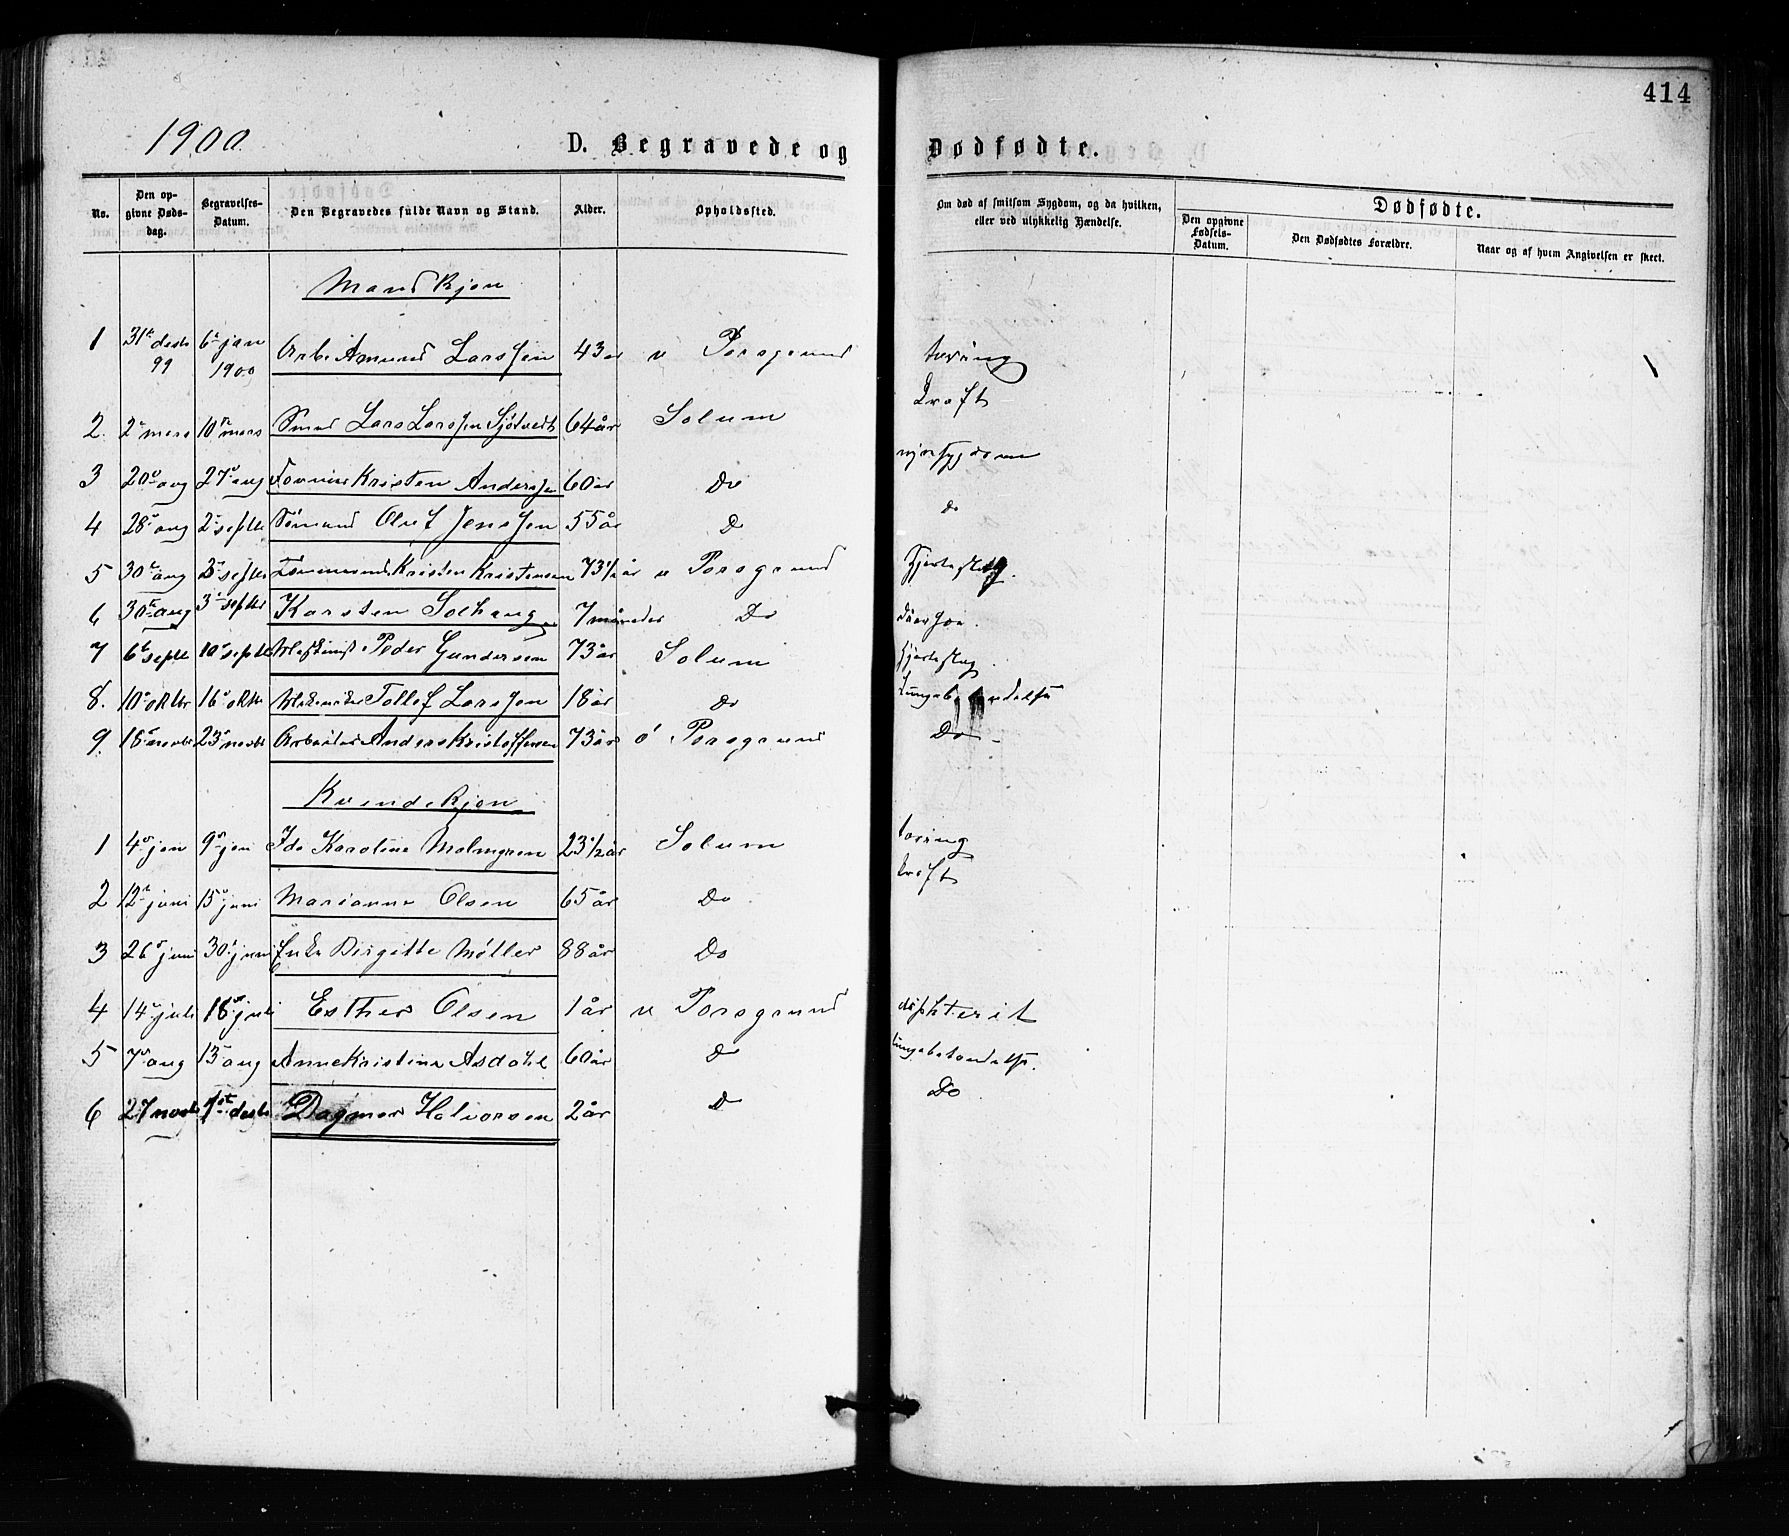 414
1900
D. Begravede og Dødfødte.
No.
Den opgivne Dødsdag.
Begravelses-Datum.
Den Begravedes fulde Navn og Stand.
Alder.
Opholdssted.
Om død af smitsom Sygdom, og da hvilken, eller ved ulykkelig Hændelse.
Dødfødte.
Den opgivne Fødsels-Datum.
Den Dødfødtes Forældre.
Naar og af hvem Angivelsen er skeet.
Mandkjøn
1 31te desb 99 6te jan 1900 Arb. Amund Larssen 43 år v Porsgrund tæring
2. 2 mars 10 mars Smed Lars Larssen 64 år Solum kræft
3 20 aug 27 aug Kristen Anderssen 60 år Do nyresygdom
4 28 aug 2 septb Sømand Oluf Jenssen 55 år Do do
5 30 aug septb Tømmermand Kristen Kristensen 73 1/2 år v Porsgrund Hjerteslag.
6 30te aug 3 septbr Karsten Solhaug 7 måneder Do diarhoe.
7 6te septb 10 septb Peder Gundersen 73 år Solum hjerteslag.
8. 10 oktbr 16 oktbr Tollef Larssen 18 år Do Lungebetændelse
9. 18 novbr 23 novbr Arbeider Anders Kristoffersen 73 år ø Porsgrund Do
Kvindekjøn
1 4 jan 9 jan Ida Karoline Malmgren 23 1/2 år Solum tæring
2 12te juni 15 juni Marianne Olsen 65 år Do kræft
3 26 juni 30 juni Enke Birgitte Møller 88 år Do
4 14 juli 18 juli Esther Olsen 1 år v Porsgrund difhterit
5 7 aug 13 aug Anne Kristine Asdahl 60 år Do lungebetændelse.
6 27 novb 1st desb Dagmar Halvorsen 2 år Do Do